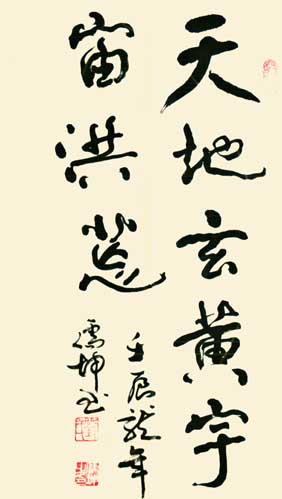 天地玄黄宇
宙洪荒
壬辰龍年
儒坤书